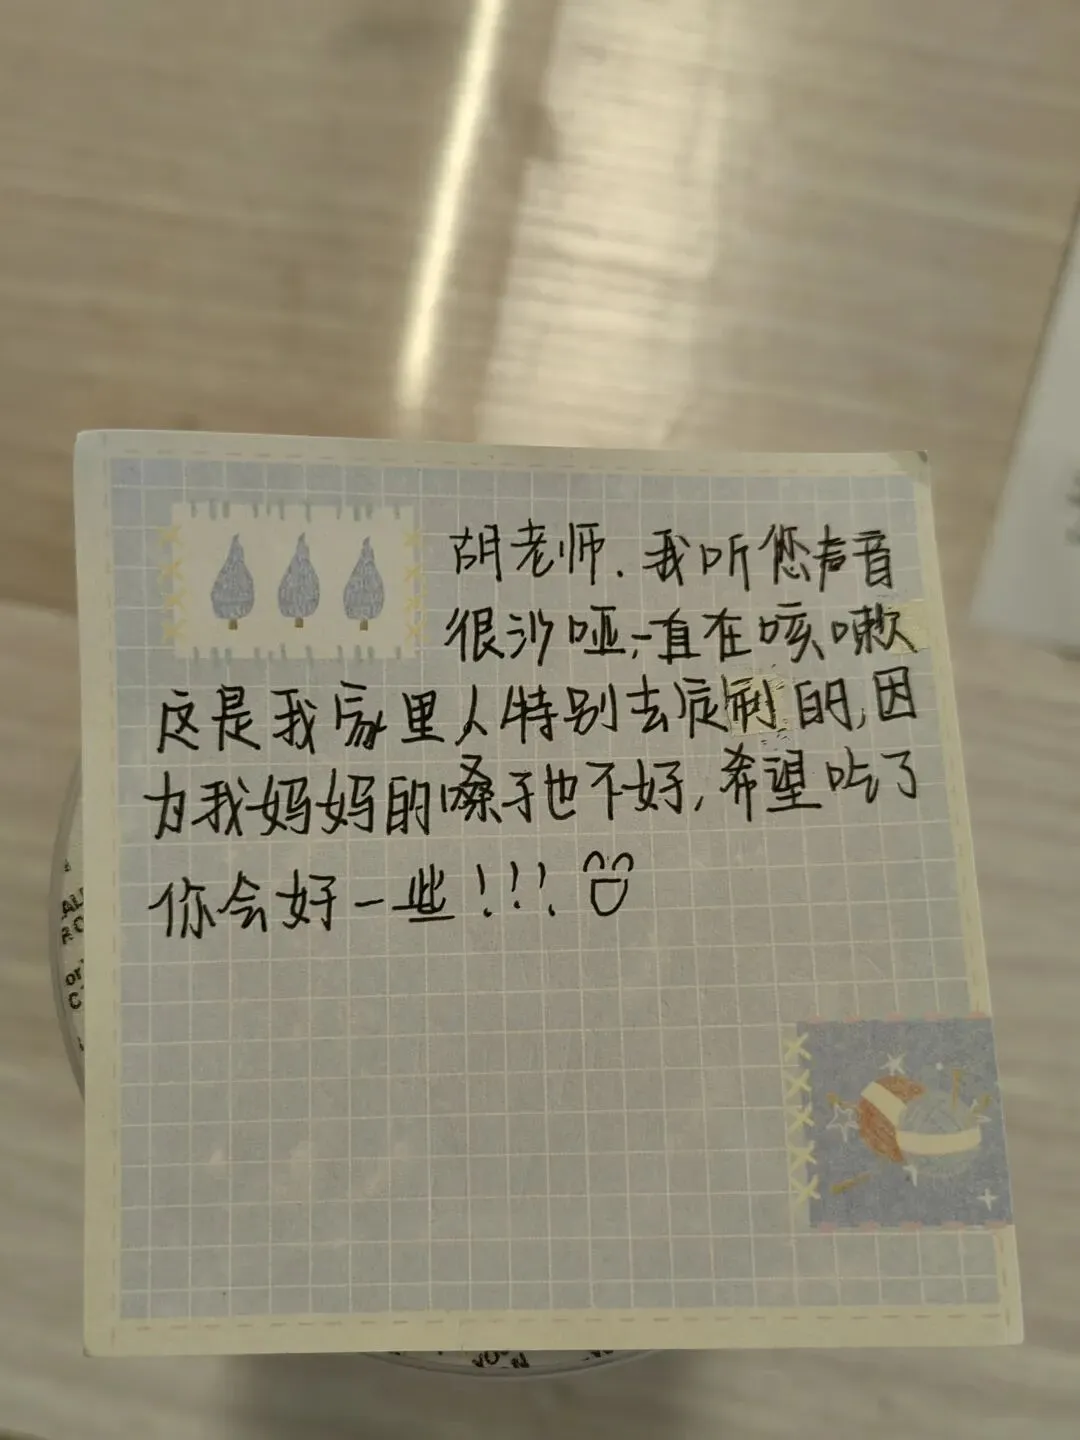 胡老师.我听您声音
很沙哑,一直在咳嗽
这是我家里人特别去定制的,因
为我妈妈的嗓子也不好,希望吃了
你会好一些!!!